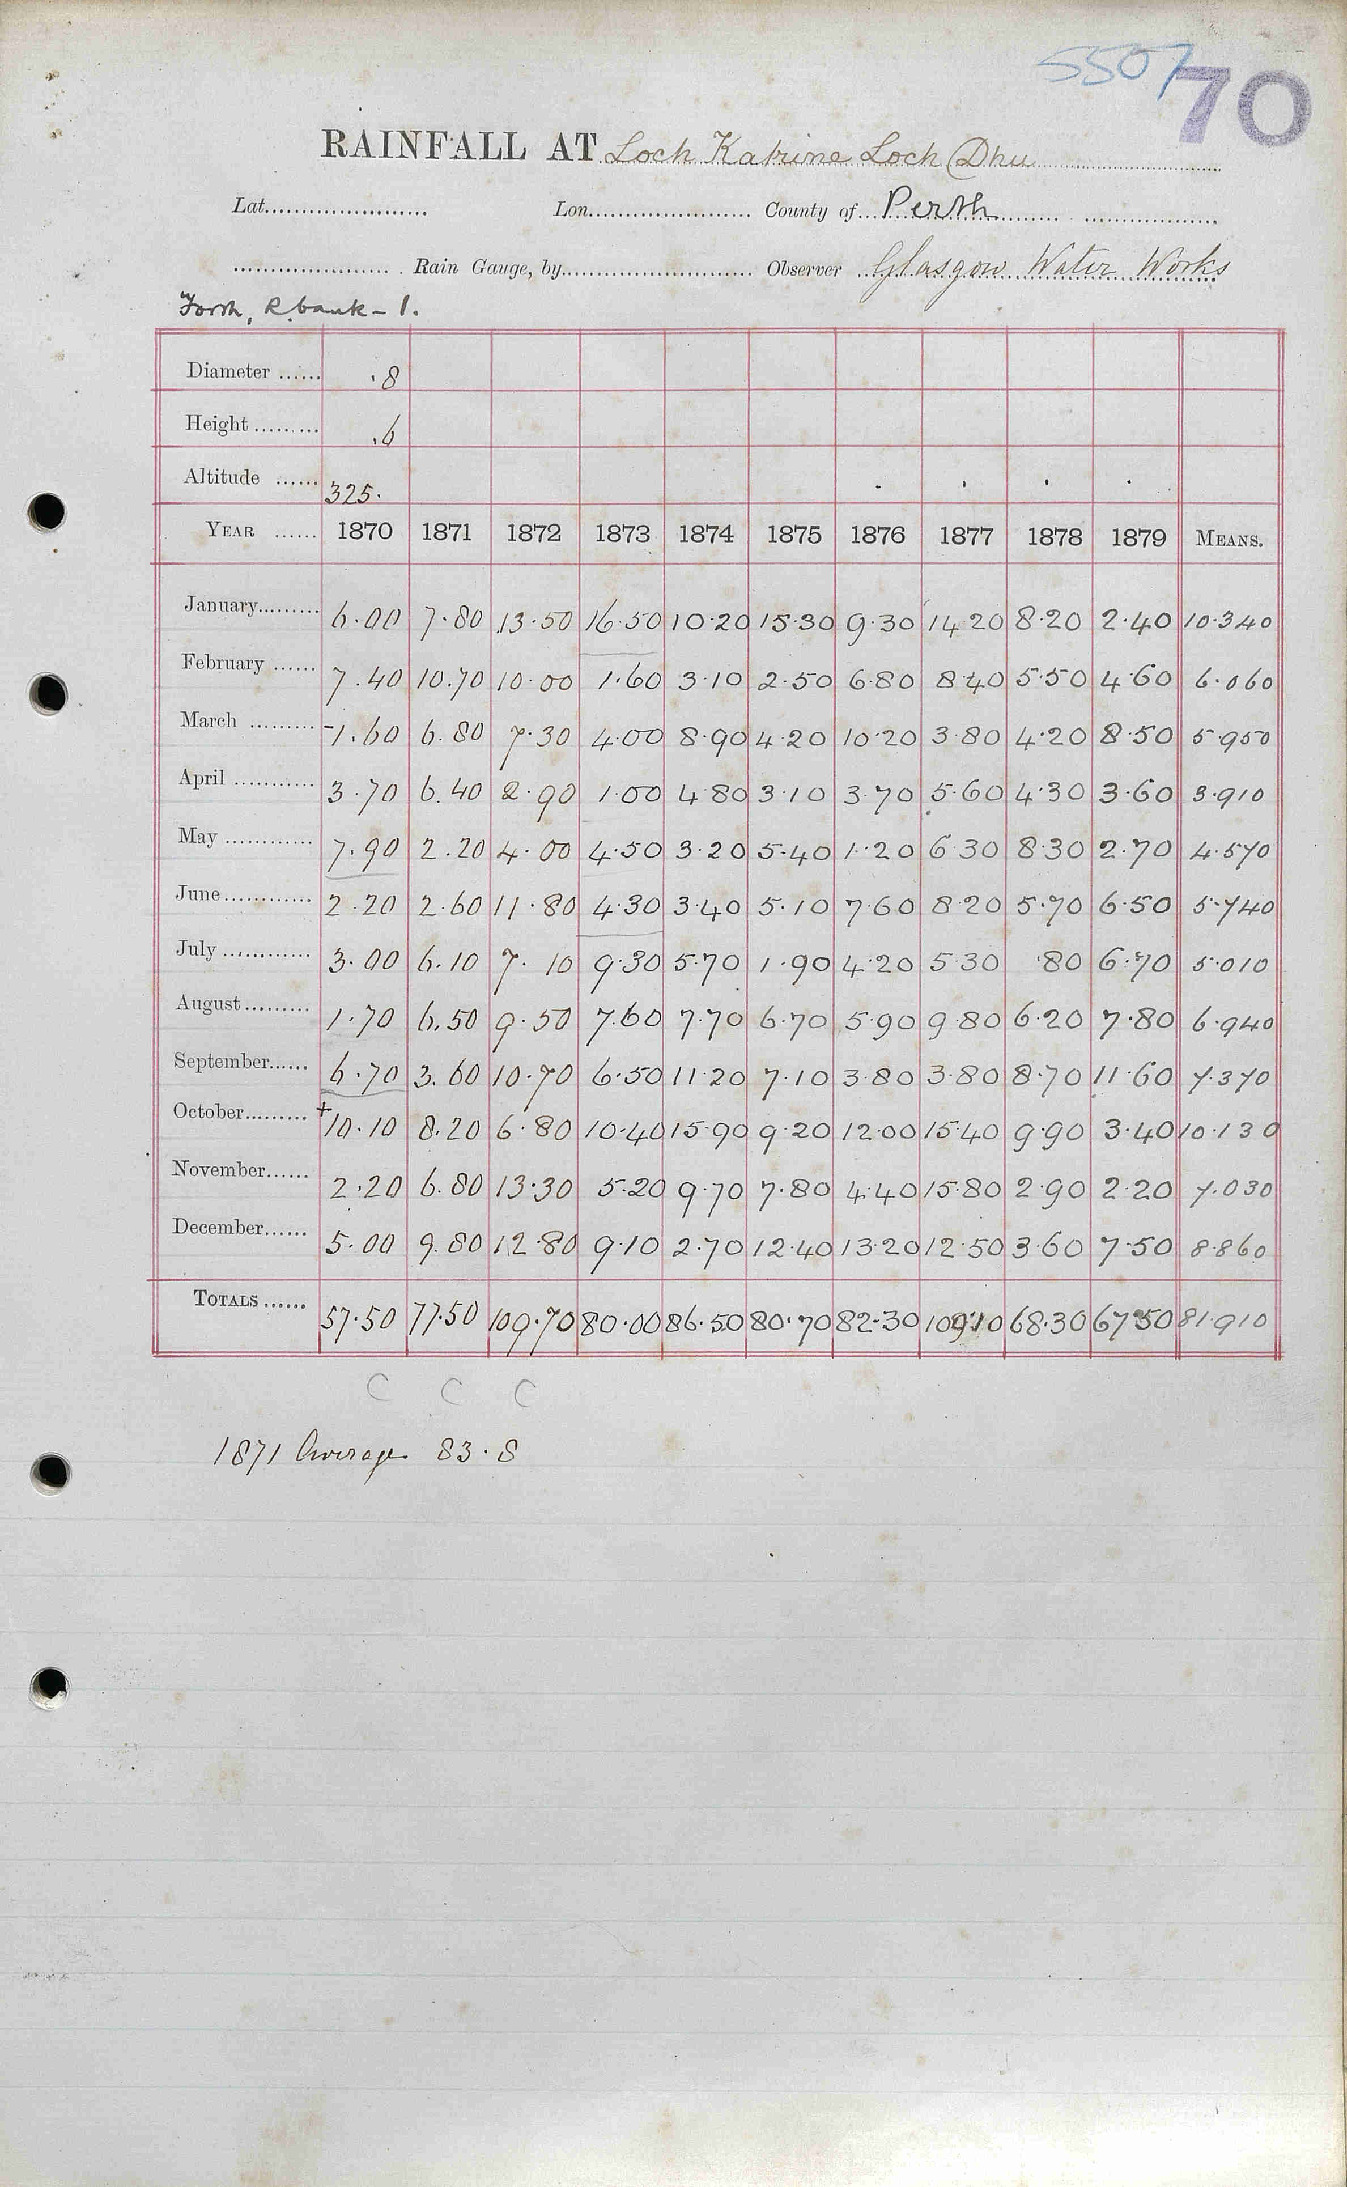 5507 70
RAINFALL AT Loch Katrine Loch Dhu
Lat. Lon. County of Perth
Rain Gauge, by Observer Glasgow Water Works
Forth, R. bank - 1.
Diameter ...... .8
Height ......... .6
Altitude ...... 325.
YEAR ...... 1870 1871 1872 1873 1874 1875 1876 1877 1878 1879 MEANS.
January......... 6.00 7.80 13.50 16.50 10.20 15.30 9.30 14.20 8.20 2.40 10.340
February ...... 7.40 10.70 10.00 1.60 3.10 2.50 6.80 8.40 5.50 4.60 6.060
March ......... -1.60 6.80 7.30 4.00 8.90 4.20 10.20 3.80 4.20 8.50 5.950
April ............ 3.70 6.40 2.90 1.00 4.80 3.10 3.70 5.60 4.30 3.60 3.910
May ............. 7.90 2.20 4.00 4.50 3.20 5.40 1.20 6.30 8.30 2.70 4.570
June............. 2.20 2.60 11.80 4.30 3.40 5.10 7.60 8.20 5.70 6.50 5.740
July ............. 3.00 6.10 7.10 9.30 5.70 1.90 4.20 5.30 .80 6.70 5.010
August.......... 1.70 6.50 9.50 7.60 7.70 6.70 5.90 9.80 6.20 7.80 6.940
September...... 6.70 3.60 10.70 6.50 11.20 7.10 3.80 3.80 8.70 11.60 7.370
October......... +10.10 8.20 6.80 10.40 15.90 9.20 12.00 15.40 9.90 3.40 10.130
November...... 2.20 6.80 13.30 5.20 9.70 7.80 4.40 15.80 2.90 2.20 7.030
December...... 5.00 9.80 12.80 9.10 2.70 12.40 13.20 12.50 3.60 7.50 8.860
TOTALS ...... 57.50 77.50 109.70 80.00 86.50 80.70 82.30 109.10 68.30 67.50 81.910
C C C
1871 Average 83.8